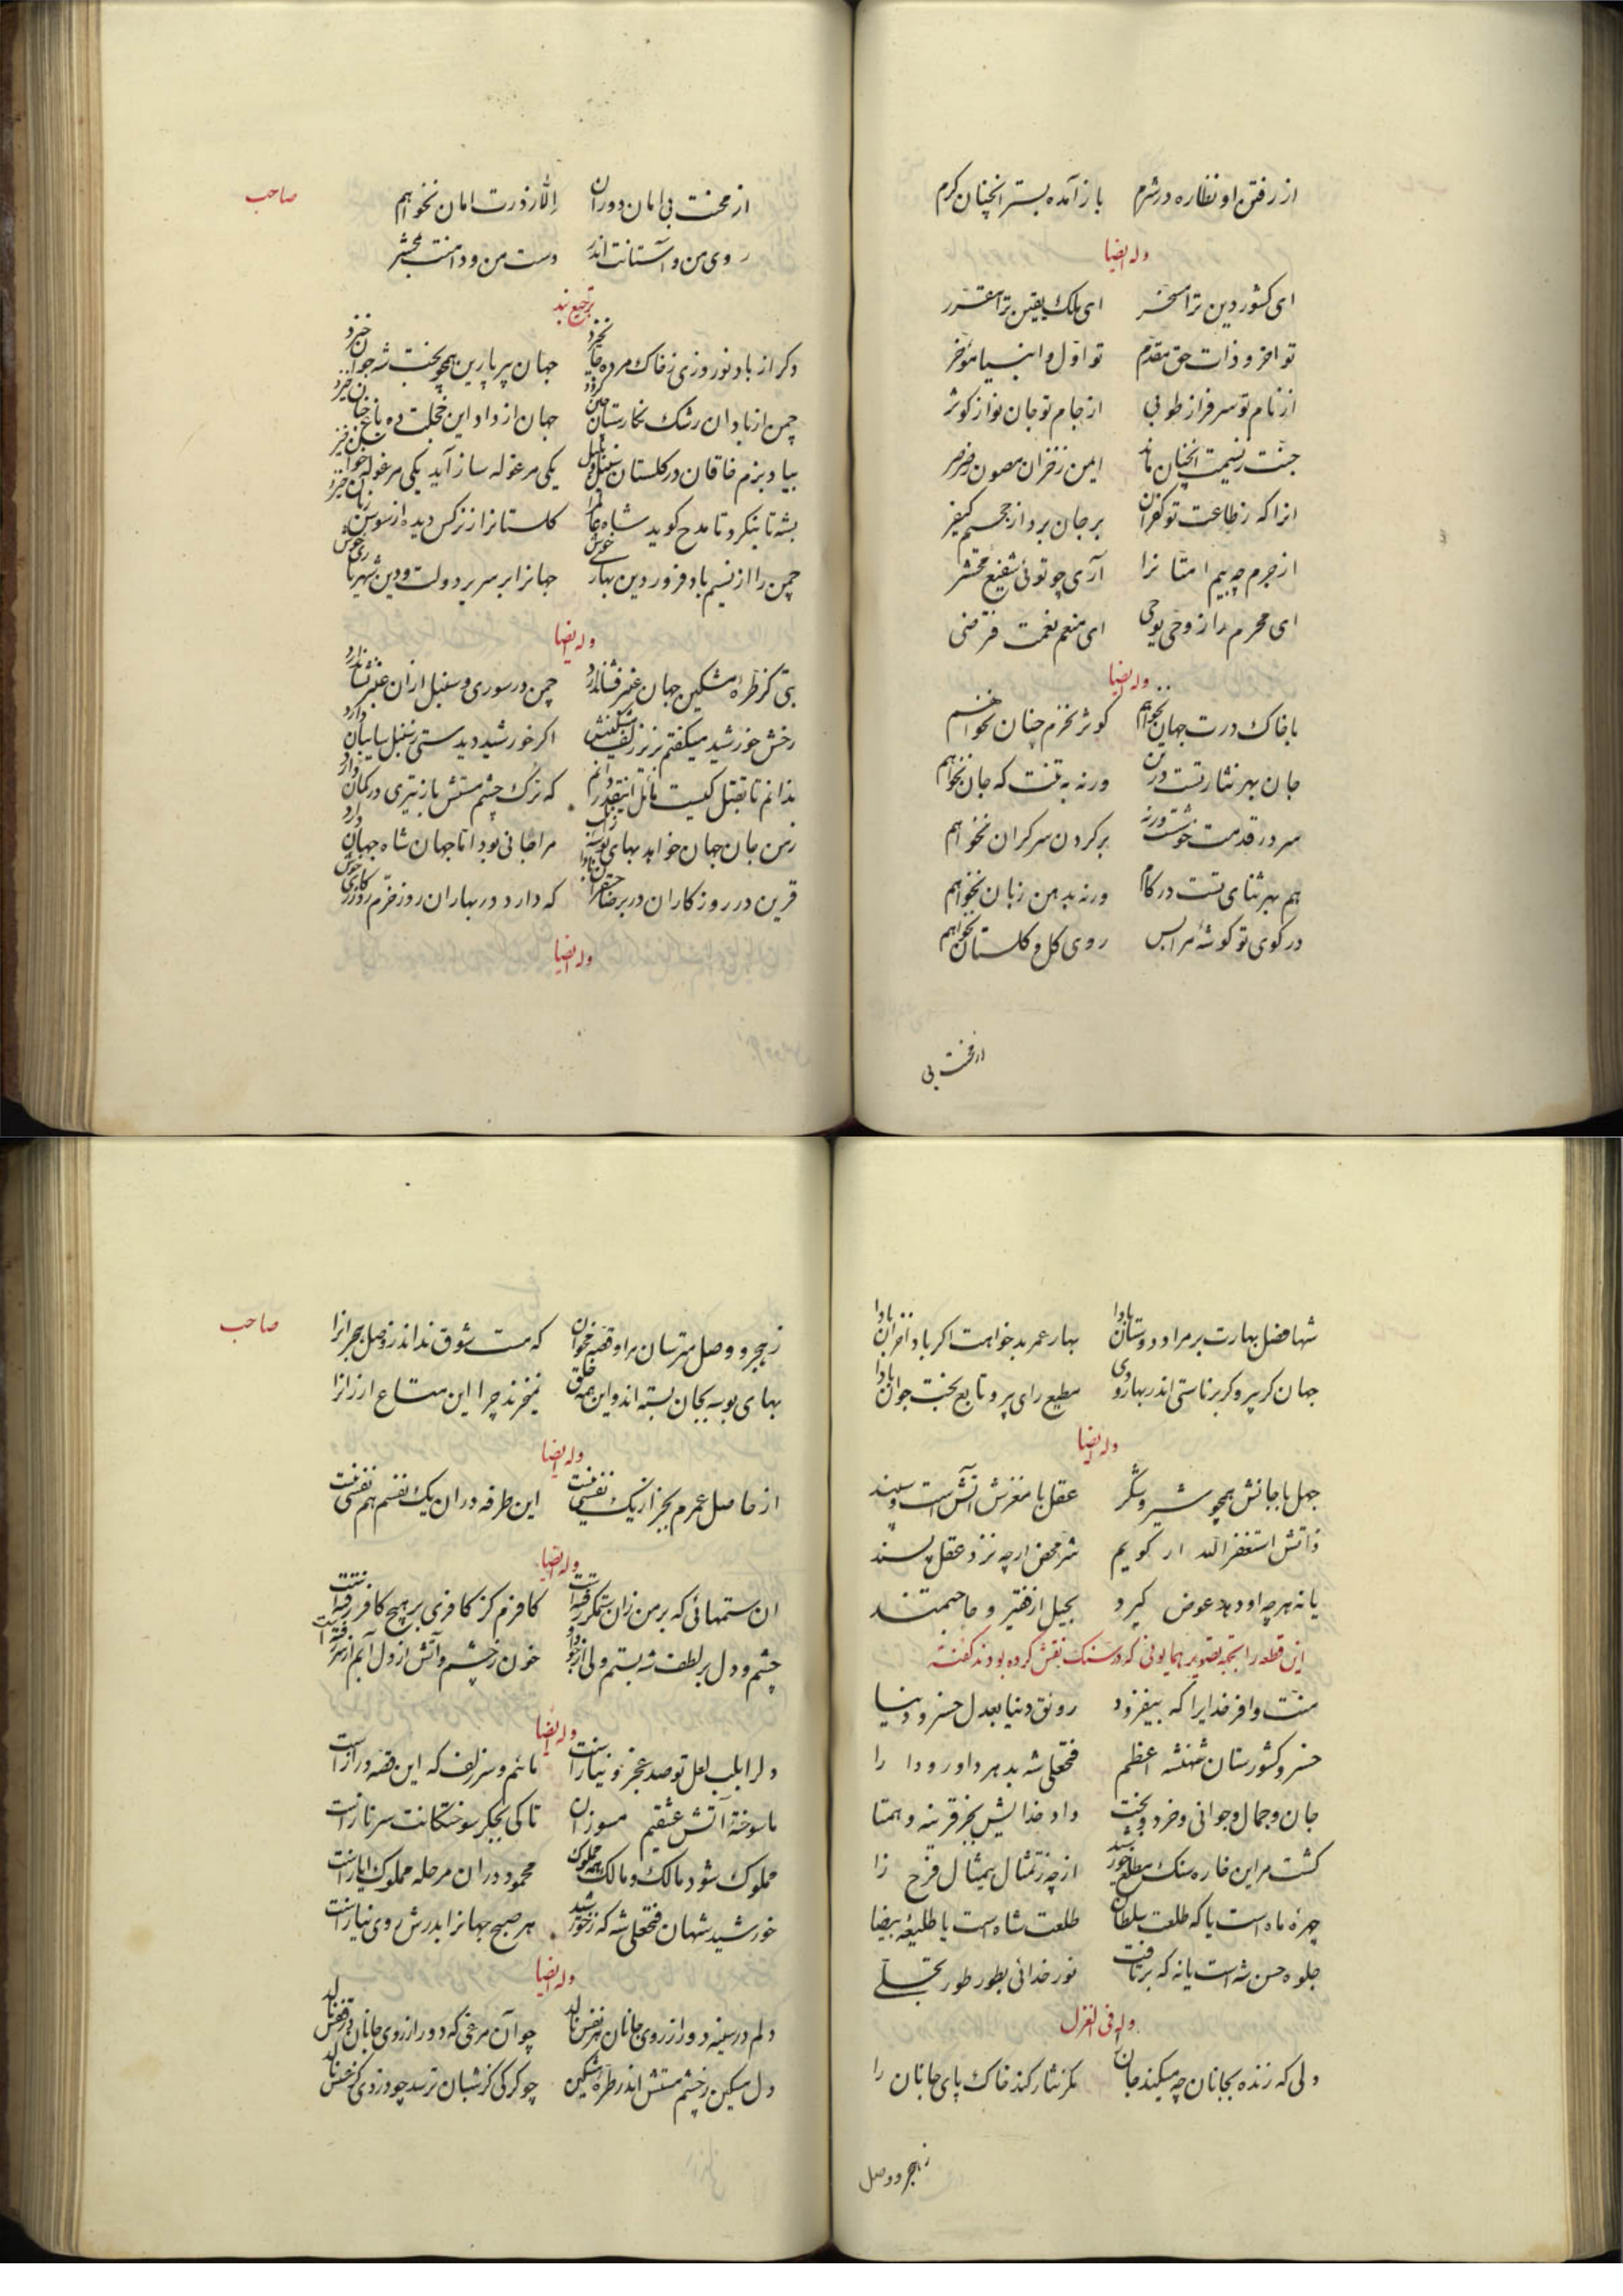 از رفتن او نظاره در شرم باز آمده بستر انچنان گرم
وله ایضا
ای کشور دین ترا مسخر ای ملک یقین ترا مقرر
تو اخر و ذات حق مقدم تو اول و انبیا مؤخر
از نام تو سرفراز طوبی از جام تو جان نواز کوثر
جنت ز نسیمت انچنان ماند ایمن ز خزان مصون ز صرصر
انرا که ز طاعت تو کفران بر جان برد از جحیم کیفر
از جرم چه بیم امتانرا آری چو توئی شفیع محشر
ای محرم راز وحی یوحی ای منعم نعمت فترضی
وله ایضا
با خاک درت جهان نخواهم کوثر نخرم جنان نخواهم
جان بهر نثار تست در تن ورنه به تنت که جان نخواهم
سر در قدمت خوشست ورنه بر گردن سر گران نخواهم
هم بهر ثنای تست در کام ورنه بدهن زبان نخواهم
در کوی تو گوشهٔ مرا بس روی گل و گلستان نخواهم
از محنت بی
صاحب
از محنت بی امان دوران الا ز درت امان نخواهم
روی من و آستانت اندر دست من و دامنت بمحشر
ترجیع بند
دگر از باد نوروزی ز خاک مرده جان خیزد جهان پیر پارین همچو بخت شه جوان خیزد
چمن از باد ان رشک نگارستان چین گردد جهان از داد این خجلت ده باغ جنان خیزد
بیاد بزم خاقان در گلستان سنبل و بلبل یکی مرغوله ساز آید یکی مرغوله خوان خیزد
بشه تا بنگرد تا مدح گوید شاه عالم را گلستانرا ز نرگس دیده از سوسن زبان خیزد
چمن را از نسیم باد فروردین بهاری خوش جهانرا بر سریر دولت و دین شهریاری خوش
وله ایضا
بتی کز طرهٔ مشکین جهان عنبرفشان دارد چمن در سوری و سنبل از ان عنبر نشان دارد
رخش خورشید میگفتم بزیر زلف مشکینش اگر خورشید دیدستی ز سنبل سایبان دارد
ندانم تا بقتل کیست مائل اینقدر دانم که ترک چشم مستش باز تیری در کمان دارد
ز من جان جهان خواهد بهای بوسهٔ زان لب مرا جانی بود اما جهان شاه جهان دارد
قرین در روزگاران در بر خضرا که دارد در بهاران روز خرم روزگاری خوش
وله ایضا
شها فصل بهارت بر مراد دوستان بادا بهار عمر بدخواهت اگر باد خزان بادا
جهان گر پیر و گر برناستی اندر بهار و دی مطیع رای پیر و تابع بخت جوان بادا
وله ایضا
جهل با جانش همچو شیر و شکر عقل با مغزش آتش است و سپند
ذاتش استغفر الله ار گویم شر محض ارچه نزد عقل پسند
یا نه هرچه او دهد عوض گیرد بخیل از فقیر و حاجتمند
این قطعه را بجهة تصویر همایونی که در سنک نقش کرده بودند گفته
منت وافر خدایرا که بیفزود رونق دنیا بعدل خسرو دنیا
خسرو کشورستان شهنشه اعظم فتحعلی شه بدهر داور و دارا
جان و جمال و جوانی و خرد و بخت داد خدایش بجز قرینه و همتا
گشت مر این خاره سنک مطلع خورشید از چه ز تمثال بیمثال فرح زا
چهرهٔ ماه است یا که طلعت سلطان طلعت شاه است یا طلیعهٔ بیضا
جلوه حسن شه است یا نه که برتافت نور خدائی بطور طور تجلی
وله فی الغزل
دلی که زنده بجانان چه میکند جان را مگر نثار کند خاک پای جانان را
ز هجر و وصل
صاحب
ز هجر و وصل مترسان مرا و قصه مخوان که مست شوق نداند ز وصل هجرانرا
بهای بوسه بجان بسته اند و این همه خلق نمیخرند چرا این متاع ارزانرا
وله ایضا
از حاصل عمرم بجز از یک نفسی نیست این طرفه در ان یک نفسم هم نفسی نیست
وله ایضا
ان ستمهائی که بر من زان ستمگر رفته است کافرم گر کافری بر هیچ کافر رفته است
چشم و دل بر لطف شه بستم ولی از جور او خون ز چشم و آتش از دل آبم از سر رفته است
وله ایضا
دلرا بلب لعل تو صد عجز و نیاز است مائم و سر زلف که این قصه دراز است
ما سوختهٔ آتش عشقیم مسوزان تا کی بجگر سوختگانت سر ناز است
مملوک شود مالک و مالک همه مملوک محمود در ان مرحله مملوک ایاز است
خورشید شهان فتحعلی شه که ز خورشید هر صبح جهانرا بدرش روی نیاز است
وله ایضا
دلم در سینه دور از روی جانان هر نفس نالد چو آن مرغی که دور از روی جانان در قفس نالد
دل مسکین ز چشم مستش اندر طرهٔ مشکین چو گرگی کز شبان ترسد چو دزدی کز عسس نالد